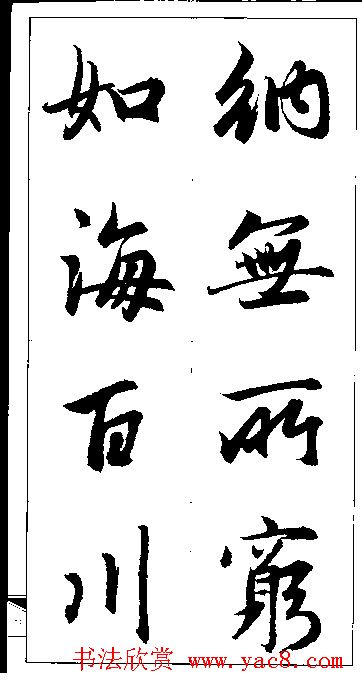 納無所窮
如海百川
书法欣赏 www.yac8.com